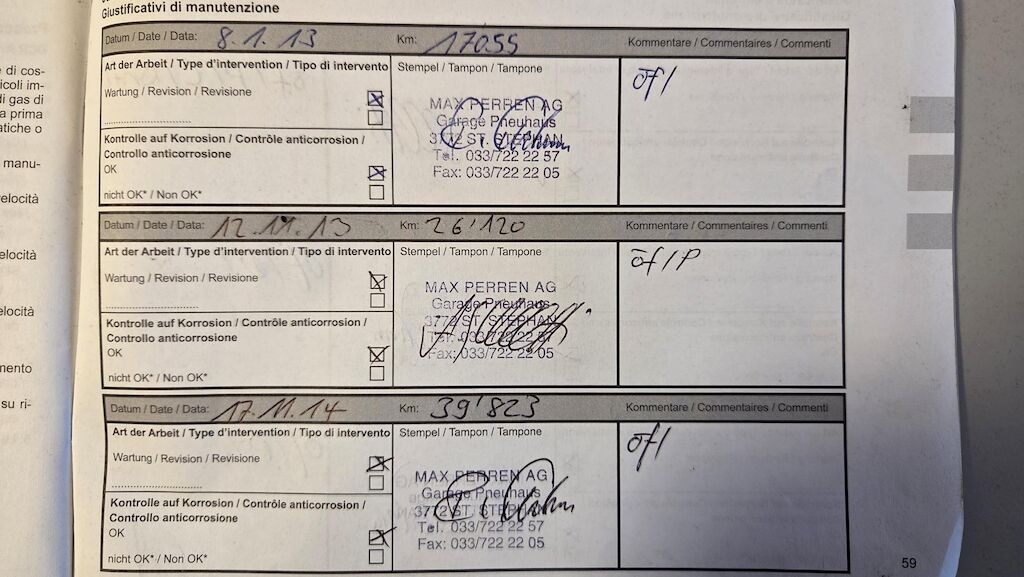 Giustificativi di manutenzione
Datum / Date / Data: 8.1.13 Km: 17055 Kommentare / Commentaires / Commenti
Art der Arbeit / Type d'intervention / Tipo di intervento Stempel / Tampon / Tampone öf/
Wartung / Revision / Revisione
MAX PERREN AG
Garage Pneuhaus
3772 ST. STEPHAN
Tel. 033/722 22 57
Fax: 033/722 22 05
Kontrolle auf Korrosion / Contrôle anticorrosion /
Controllo anticorrosione
OK
nicht OK* / Non OK*
Datum / Date / Data: 12.11.13 Km: 26'120 Kommentare / Commentaires / Commenti
Art der Arbeit / Type d'intervention / Tipo di intervento Stempel / Tampon / Tampone öf/P
Wartung / Revision / Revisione
MAX PERREN AG
Garage Pneuhaus
3772 ST. STEPHAN
Tel. 033/722 22 57
Fax: 033/722 22 05
Kontrolle auf Korrosion / Contrôle anticorrosion /
Controllo anticorrosione
OK
nicht OK* / Non OK*
Datum / Date / Data: 17.11.14 Km: 39'823 Kommentare / Commentaires / Commenti
Art der Arbeit / Type d'intervention / Tipo di intervento Stempel / Tampon / Tampone öf/
Wartung / Revision / Revisione
MAX PERREN AG
Garage Pneuhaus
3772 ST. STEPHAN
Tel. 033/722 22 57
Fax: 033/722 22 05
Kontrolle auf Korrosion / Contrôle anticorrosion /
Controllo anticorrosione
OK
nicht OK* / Non OK*
59